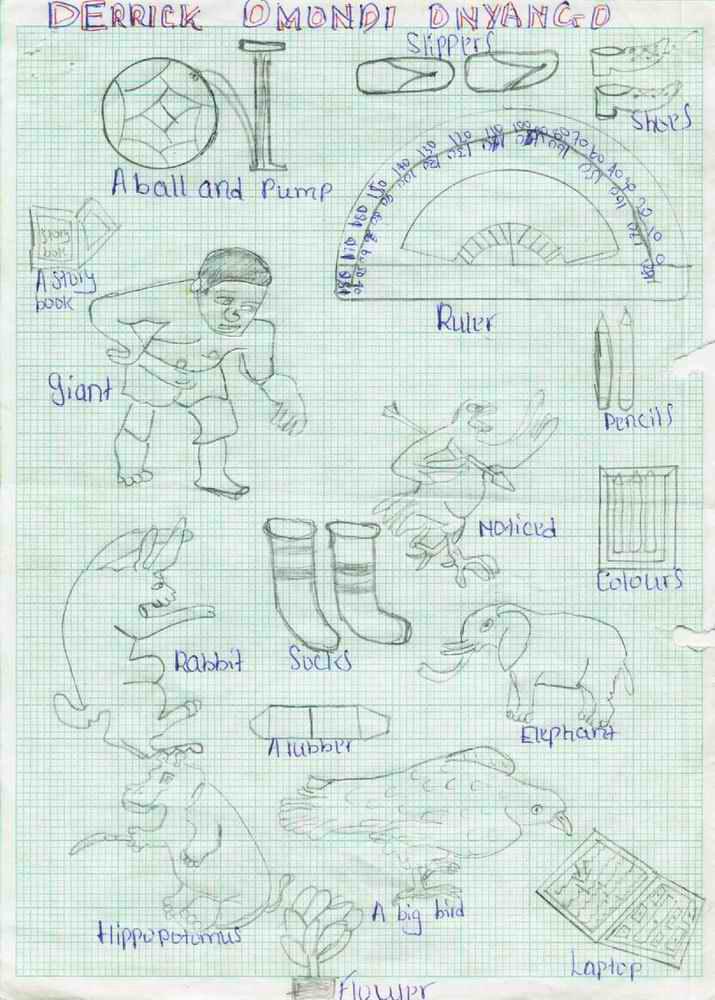 DERRICK OMONDI ONYANGO
Slippers
Shoes
A ball and Pump
Story
book
A story
book
Ruler
giant
Pencils
Noticed
Colours
Rabbit
Socks
Elephant
A rubber
A big bird
Hippopotamus
Laptop
Flower